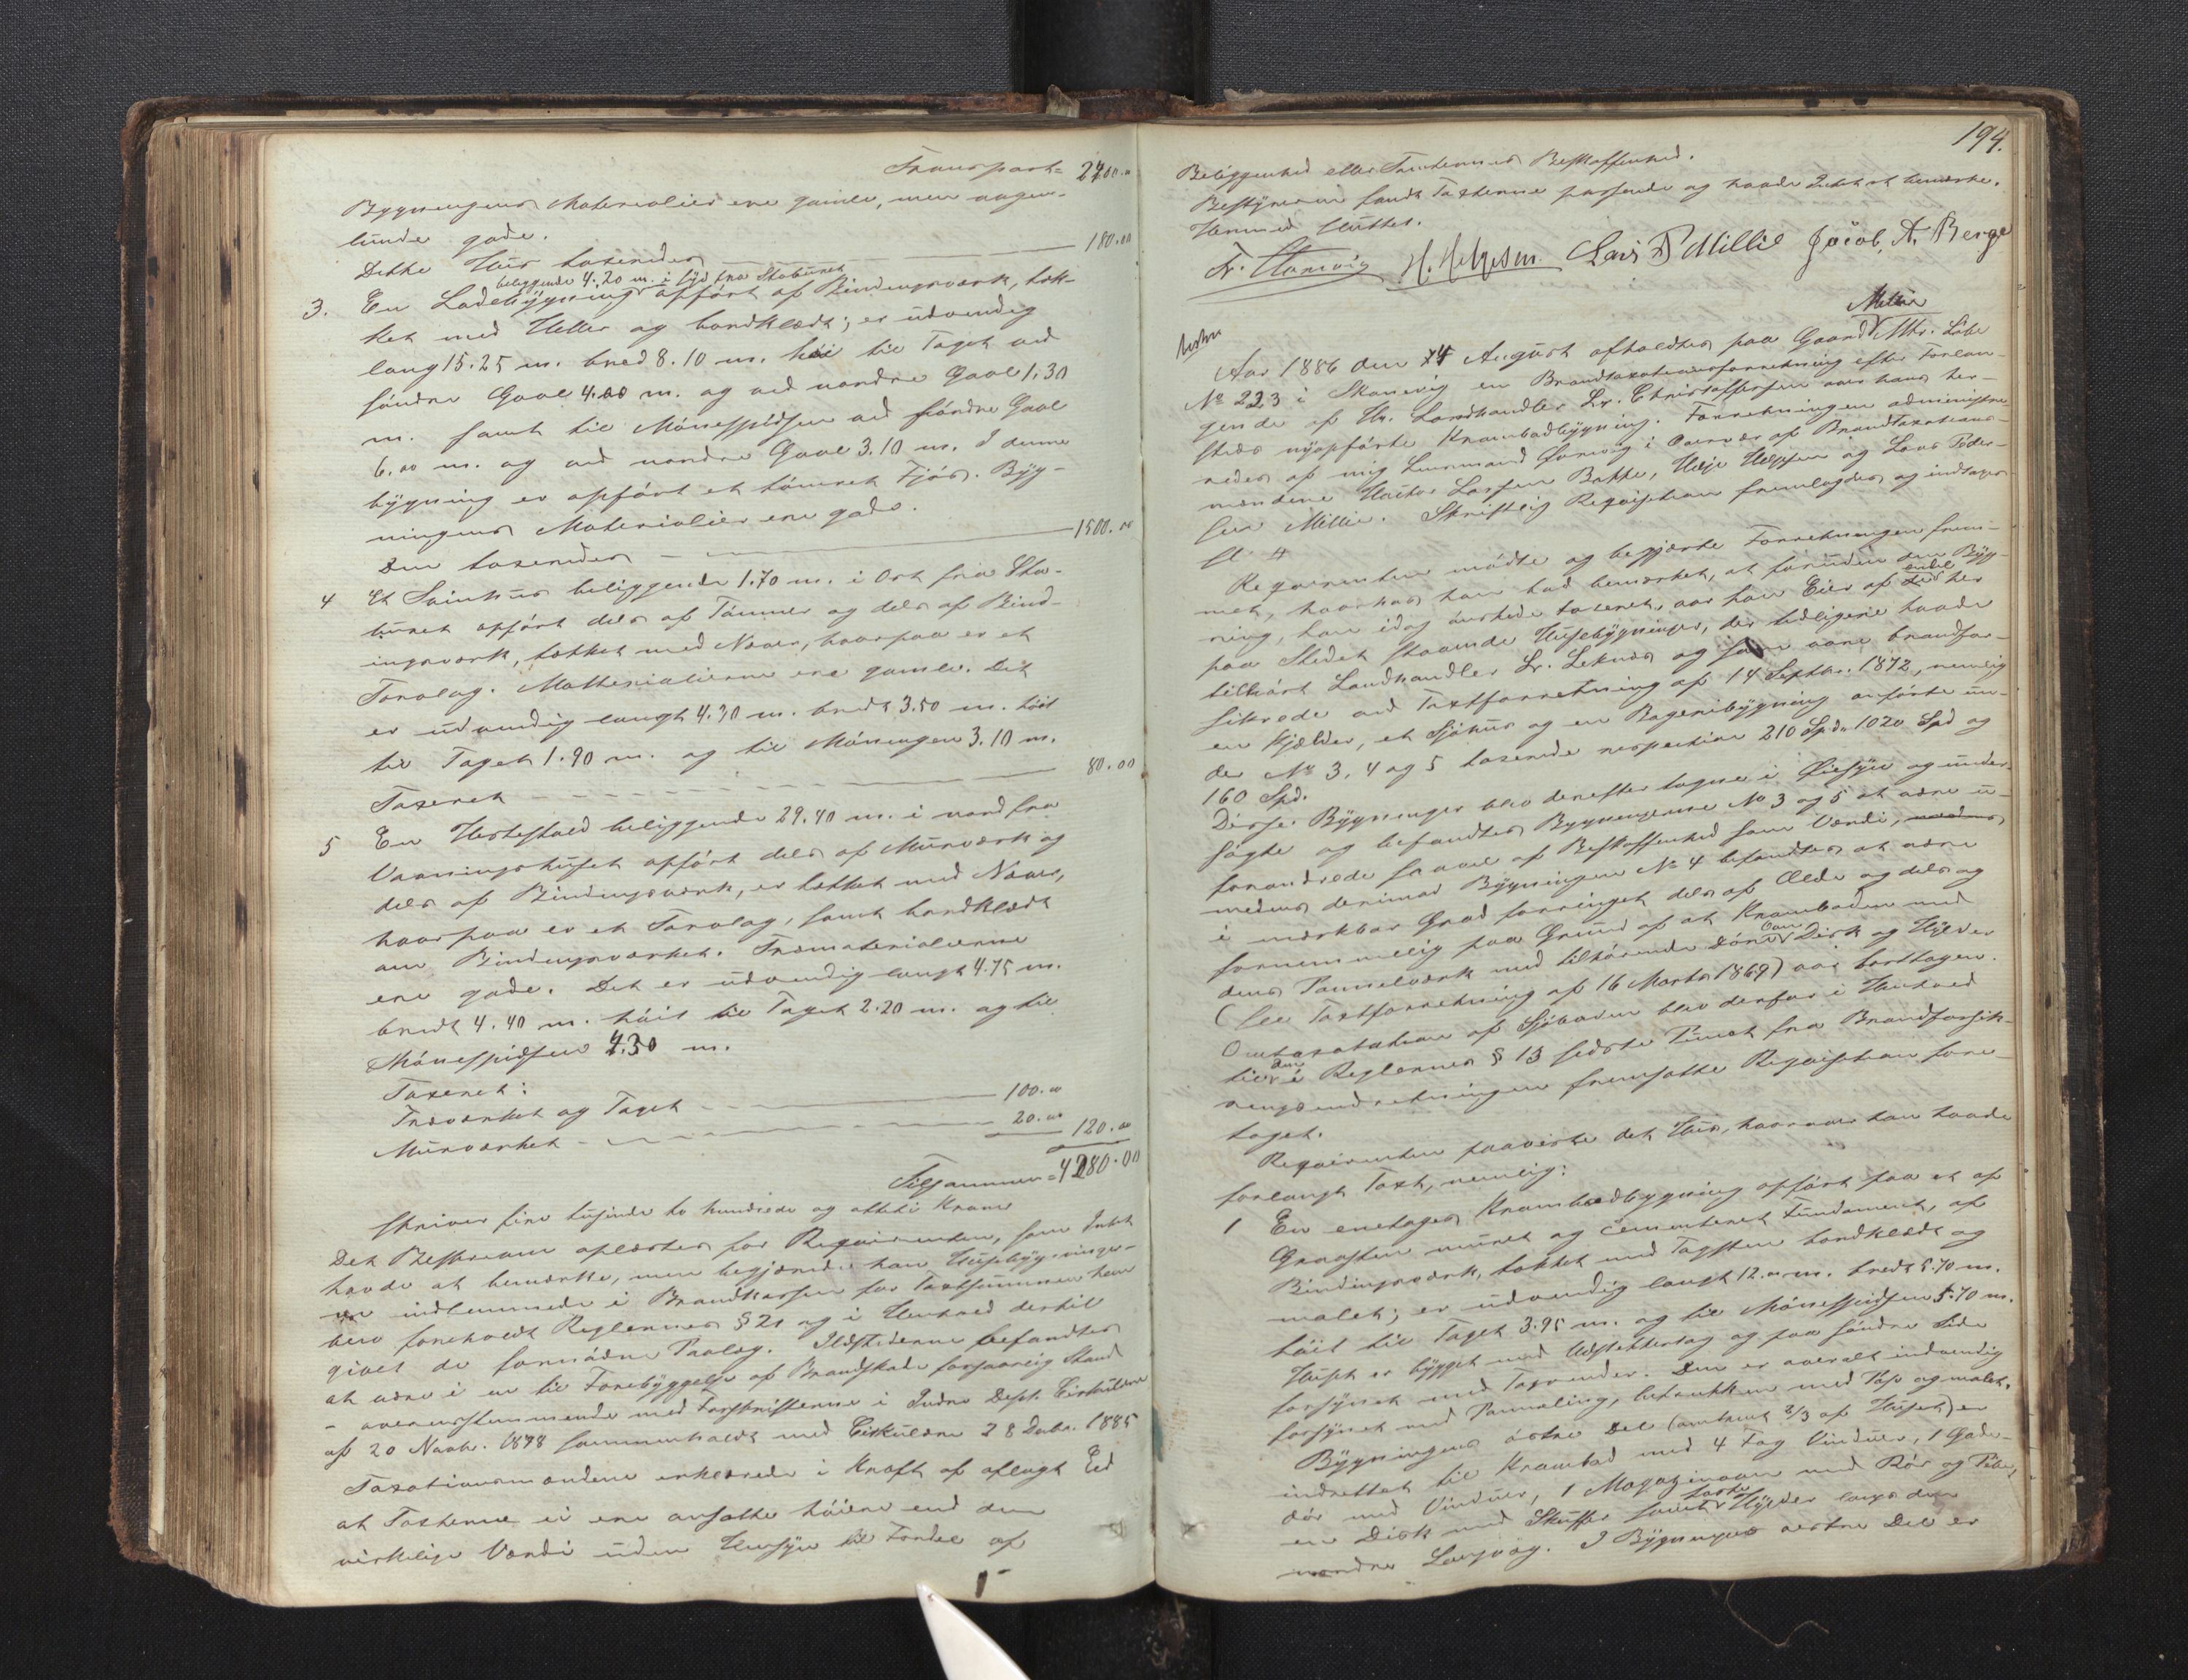 Transport = 2400.00
Bygningens Materialier ere gamle, men nogen-
lunde gode.
Dette Huus taxeredes 180.00
beliggende 4.20 m. i Syd fra Stabúret
3. En Ladebÿgning opfört af Bindingsværk, tæk-
ket med Heller og bordklædt; er udvendig
lang 15.25 m. bred 8.10 m. höi til Taget ved
söndre Gavl 4.00 m. og ved nordre Gavl 1.30
m. samt til Mönespidsen ved söndre Gavl
6.00 m. og ved nordre Gavl 3.10 m. I denne
bÿgning er opfört et tömret Fjös. Byg-
ningens Materialier ere gode.
Den taxeredes 1500.00
4 Et Svinhus beliggende 1.70 m. i Ost fra Sta-
búret opfört dels af Tömmer og dels af Bind-
ingsværk, tækket med Næver, hvorpaa er et
Torvlag. Matterialierne ere gamle. Det
er udvendig langt 4.30 m. bredt 3.50 m. höit
til Taget 1.90 m. og til Möningen 3.10 m.
Taxeret 80.00
5 En Hestestald beliggende 29.40 m. i nord fra
Vaaningshuset opfört dels af Múrværk og
dels af Bindingsværk, er tættet med Næver,
hvorpaa er et Torvlag, samt bordklædt
om Bindingsværket. Træmaterialierne
ere gode. Det er udvendig langt 4.75 m.
bredt 4.40 m. höit til Taget 2.20 m. og til
Mönespidsen 4.30 m.
Taxeret:
Træværket og Taget 100.00
Múrværket 20.00 120.00
Tilsammen = 4280.00
skriver fire tusinde to hundrede og otteti Kroner
Det Passerede oplæstes for Reqvirenten, som Intet
havde at bemærke, men begjærede han Husebÿgninger-
ne indlemmede i Brandkassen for Taxtsummen han
blev foreholdt Reglernes § 21 og i Henhold dertil
givet de fornödne Paalæg. Ildstederne befandtes
at være i en til Forebÿggelse af Brandskade forsvarlig Stand
- overensstemmende med Forskrifterne i Indre Dept. Cirkulære
af 20 Novbr. 1878 sammenholdt med Cirkulære 28 Debr. 1885
Taxationsmændene erklærede i Kraft af aflagt Eed
at Taxterne ei ere ansatte höiere end den
virkelige Værdi uden Hensÿn til Fordel af
194.
Beliggenhed eller Tomternes Beskaffenhed.
Bestÿreren fandt Taxterne passende og havde Intet at bemærke.
Hermed Sluttet.
H. Helgesen. Lars P Millie Jacob. A. Berge
Millie
Aar 1886 den 24 August afholdtes paa Gaard Mtr. Löbe
No 223 i Skanevig en Brandtaxationsforretning efter Forlan-
gende af Hr. Landhandler Lr. Christoffersen over hans her-
steds nÿopförte Krambodbÿgning. Forretningen administre-
redes af mig Lensmand i Overvær af Brandtaxations-
mændene Larsen Bakke, og Lars Peder-
sen Millie. Skriftlig Reqvisition fremlagdes og indtages
Reqvirenten mödte og begjærte Forretningen frem-
met, hvorhos han bad bemærket, at foruden den Bÿg-
ning, han idag önskede taxeret, var han Eier af endel her
paa Stedet staaende Husebÿgninger, der tidligere havde
tilhört Landhandler Lr. Leknes og som vare brandfor-
sikrede ved Taxtforretning af 14 Septbr. 1872, nemlig
en Kjælder, et Sjöhus og en Bageribÿgning anförte un-
der No 3, 4 og 5 taxerede respective 210 Spd., 1020 Spd og
160 Spd.
Disse Bÿgninger blev derefter tagne i Öiesÿn og under-
sögte og befandtes Bygningerne No 3 og 5 at være u-
forandrede saavel af Beskaffenhed som Værdi,
medens derimod Bÿgningen No 4 befandtes at være
i mærkbar Grad forringet dels af Ælde og dels og
fornemmelig paa Grund af at Kramboden med
dens Pannelværk med tilhörende Döre Ovn Disk og Hÿlder
(see Taxtforretning af 16 Marts 1869) var borttagen.
Omtaxatation af Sjöboden blev derfor i Henhold
til den i Reglernes § 13 sidste Punct fra Brandforsik-
ringsindretningen fremsatte Reqvisition fore-
taget.
Reqvirenten paaviste det Hus, hvorover han havde
forlangt Taxt, nemlig:
1 En enetages Krambodbygning opfört paa et af
Graasten muret og cementeret Fundament, af
Bindingsværk, takket med Tagsten bordklædt og
malet; er udvendig langt 12.00 m. bredt 5.70 m.
höit til Taget 3.95 m. og til Mönespidsen 5.70 m.
Huset er bÿgget med Udstikkertag og paa söndre Side
forsÿnet med Tagrender. Den er overalt indvendig
forsÿnet med Panneling, betrukken med Pap og malet.
Bÿgningens östre Del (omtrent 2/3 af Huset) er
indrettet til Krambod med 4 Fag Vindúer, 1 Gade-
dör med Vindúer, 1 Magazinovn med Rör og Pibe,
en Disk med Skuffer samt faste Hÿlder langs den
nordre Langvæg. I Bÿgningens vestre Del er